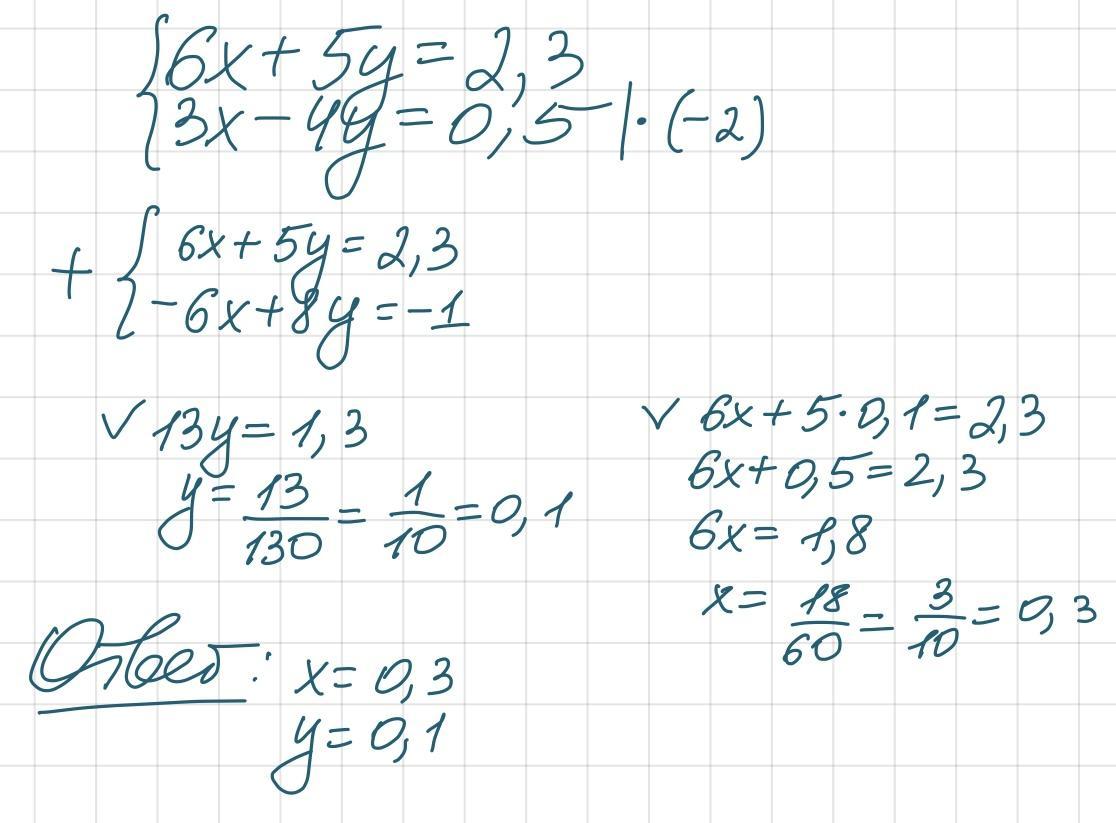 {6x + 5y = 2,3
{3x - 4y = 0,5 | · (-2)
+ { 6x + 5y = 2,3
{ -6x + 8y = -1
✓ 13y = 1,3
y = 13/130 = 1/10 = 0,1
✓ 6x + 5 · 0,1 = 2,3
6x + 0,5 = 2,3
6x = 1,8
x = 18/60 = 3/10 = 0,3
Ответ: x = 0,3
y = 0,1